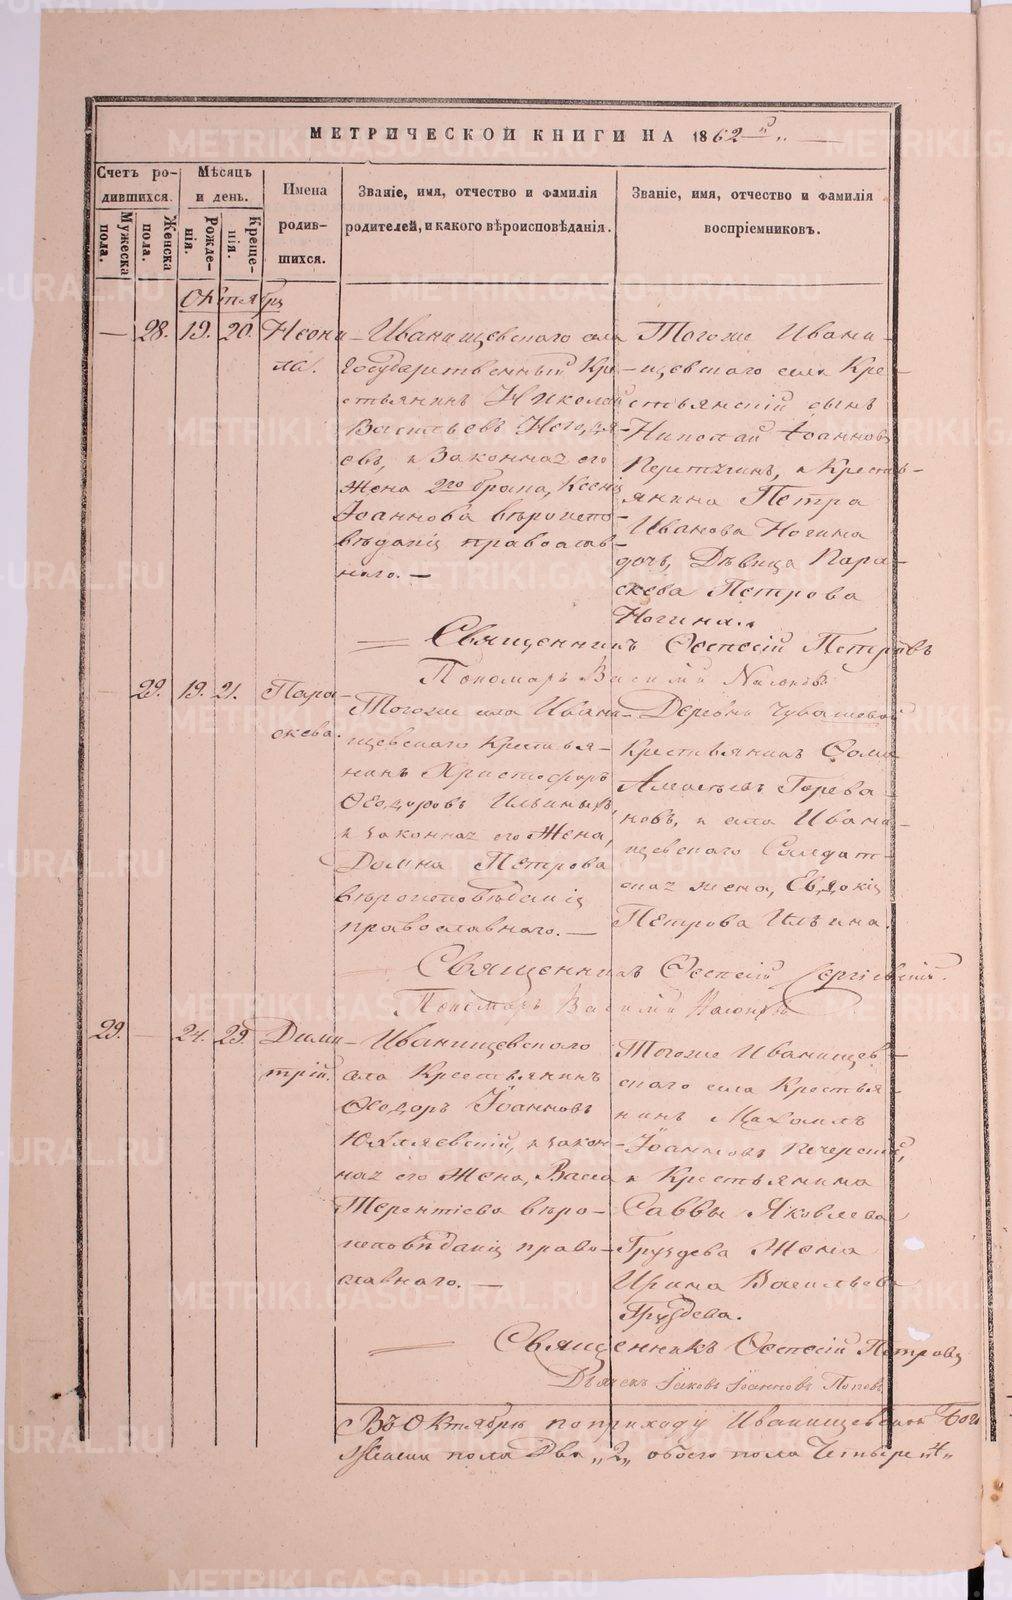 МЕТРИЧЕСКОЙ КНИГИ НА 1862 й
Счетъ ро-
дившихся.
Мужеска
пола.
Женска
пола.
Мѣсяцъ
и день.
Рожде-
нія.
Креще-
нія.
Имена
родив-
шихся.
Званіе, имя, отчество и фамилія
родителей, и какого вѣроисповѣданія.
Званіе, имя, отчество и фамилія
воспріемниковъ.
Октябрь
— 28. 19. 20. Неони-
ла.
Иванищевскаго села
Государственный Кре-
стьянинъ Николай
Васильевъ
евъ, и Законная его
Жена 2го брака, Ксенія
Іоаннова вѣроиспо-
вѣданія православ-
наго. —
Тогоже Ивани-
щевскаго села Кре-
стьянскій сынъ
Николай Іоанновъ
и Кресть-
янина Петра
Иванова Ногина
дочь, Дѣвица Пара-
скева Петрова
Ногина.
Священникъ Ѳеспесій Петровъ
Пономарь Василій
— 29. 19. 21. Пара-
скева.
Тогоже села Ивани-
щевскаго Крестья-
нинъ Христофоръ
Ѳеодоровъ Ильиныхъ,
и законная его Жена,
Домна Петрова
вѣроисповѣданія
православнаго. —
Деревни Чувашевой
Крестьянинъ Ѳома
Горева-
новъ, и села Ивани-
щевскаго Солдат-
ская жена, Евдокія
Петрова Ильина.
Священникъ Ѳеспесій Сергіевскій.
Пономарь Василій
29. — 24. 29. Дими-
трій.
Иванищевскаго
села Крестьянинъ
Ѳеодоръ Іоанновъ
и закон-
ная его Жена, Васса
Терентіева вѣро-
исповѣданія право-
славнаго. —
Тогоже Иванищев-
скаго села Крестья-
нинъ Михаилъ
Іоанновъ Печерскій,
и Крестьянина
Саввы Яковлева
Груздева Жена
Ирина Васильева
Груздева.
Священникъ Ѳеспесій Петровъ
Дьячекъ Іаковъ Іоанновъ Поповъ
Въ Октябрѣ по приходу Иванищевской
Женска пола Два „2„ обоего пола Четыре „4„